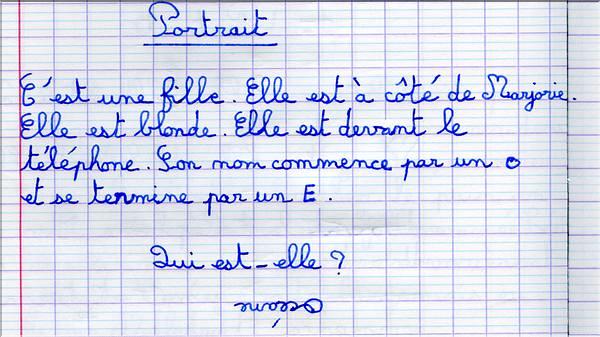 Portrait
C'est une fille. Elle est à côté de Marjorie.
Elle est blonde. Elle est devant le
téléphone. Son nom commence par un o
et se termine par un E.
Qui est-elle ?
Océane